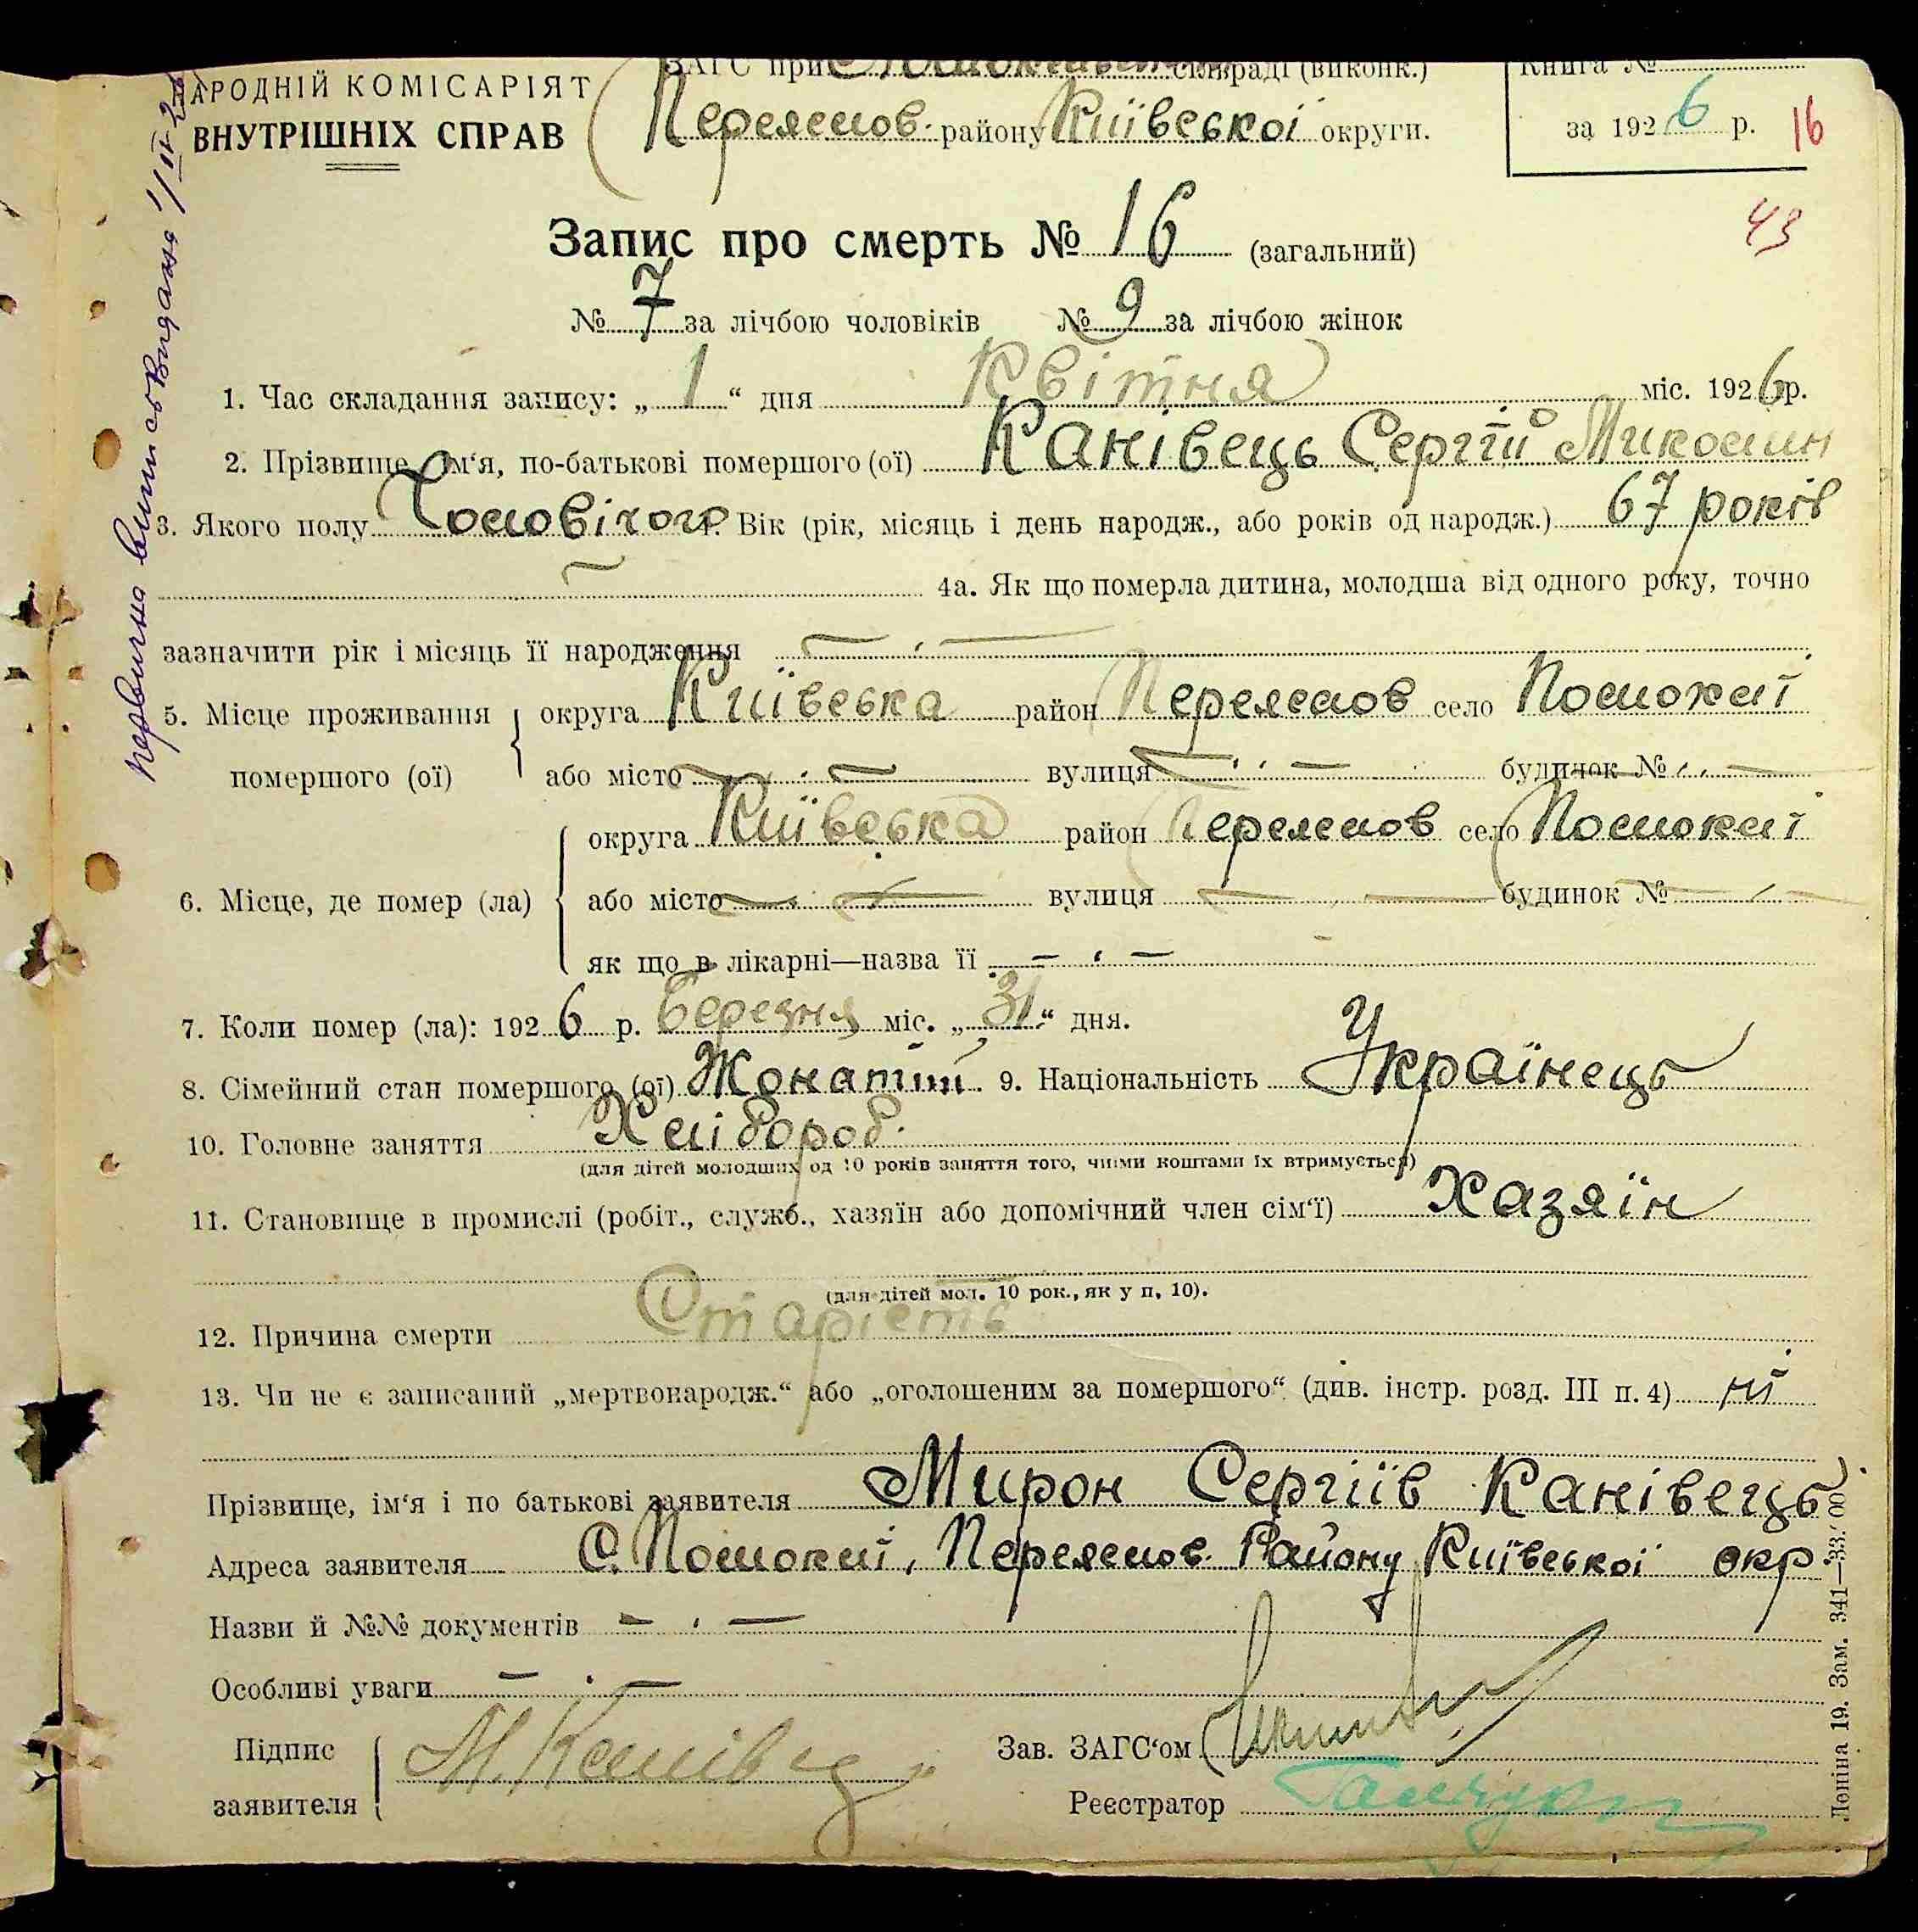 АРОДНІЙ КОМІСАРІЯТ
ВНУТРІШНІХ СПРАВ
ЗАГС при сільраді (виконк.)
Переяслов. району Київської округи.
Книга №
за 1926 р.
16
43
Запис про смерть № 16 (загальний)
№ 7 за лічбою чоловіків № 9 за лічбою жінок
1. Час складання запису: „ 1 “ дня Квітня міс. 1926 р.
2. Прізвище, ім‘я, по-батькові помершого (ої) Канівець Сергій Миколин
3. Якого полу Чоловічого 4. Вік (рік, місяць і день народж., або років од народж.) 67 років
4а. Як що померла дитина, молодша від одного року, точно
зазначити рік і місяць її народження
5. Місце проживання помершого (ої)
округа Київська район Переяслов село Положаї
або місто вулиця будинок №
6. Місце, де помер (ла)
округа Київська район Переяслов село Положаї
або місто вулиця будинок №
як що в лікарні—назва її
7. Коли помер (ла): 1926 р. Березня міс. „ 31 “ дня.
8. Сімейний стан помершого (ої) Жонатий. 9. Національність Українець
10. Головне заняття Хлібороб.
(для дітей молодших од 10 років заняття того, чиїми коштами їх втримується)
11. Становище в промислі (робіт., служб., хазяїн або допомічний член сім‘ї) Хазяїн
(для дітей мол. 10 рок., як у п. 10).
12. Причина смерти Старість
13. Чи не є записаний „мертвонародж.“ або „оголошеним за помершого“ (див. інстр. розд. III п. 4) ні
Прізвище, ім‘я і по батькові заявителя Мирон Сергіїв Канівець
Адреса заявителя С. Положаї, Переяслов. Району Київської окр.
Назви й №№ документів
Особливі уваги
Підпис заявителя М. Канівец
Зав. ЗАГС‘ом
Реєстратор
первична випись видана 1/IV 26